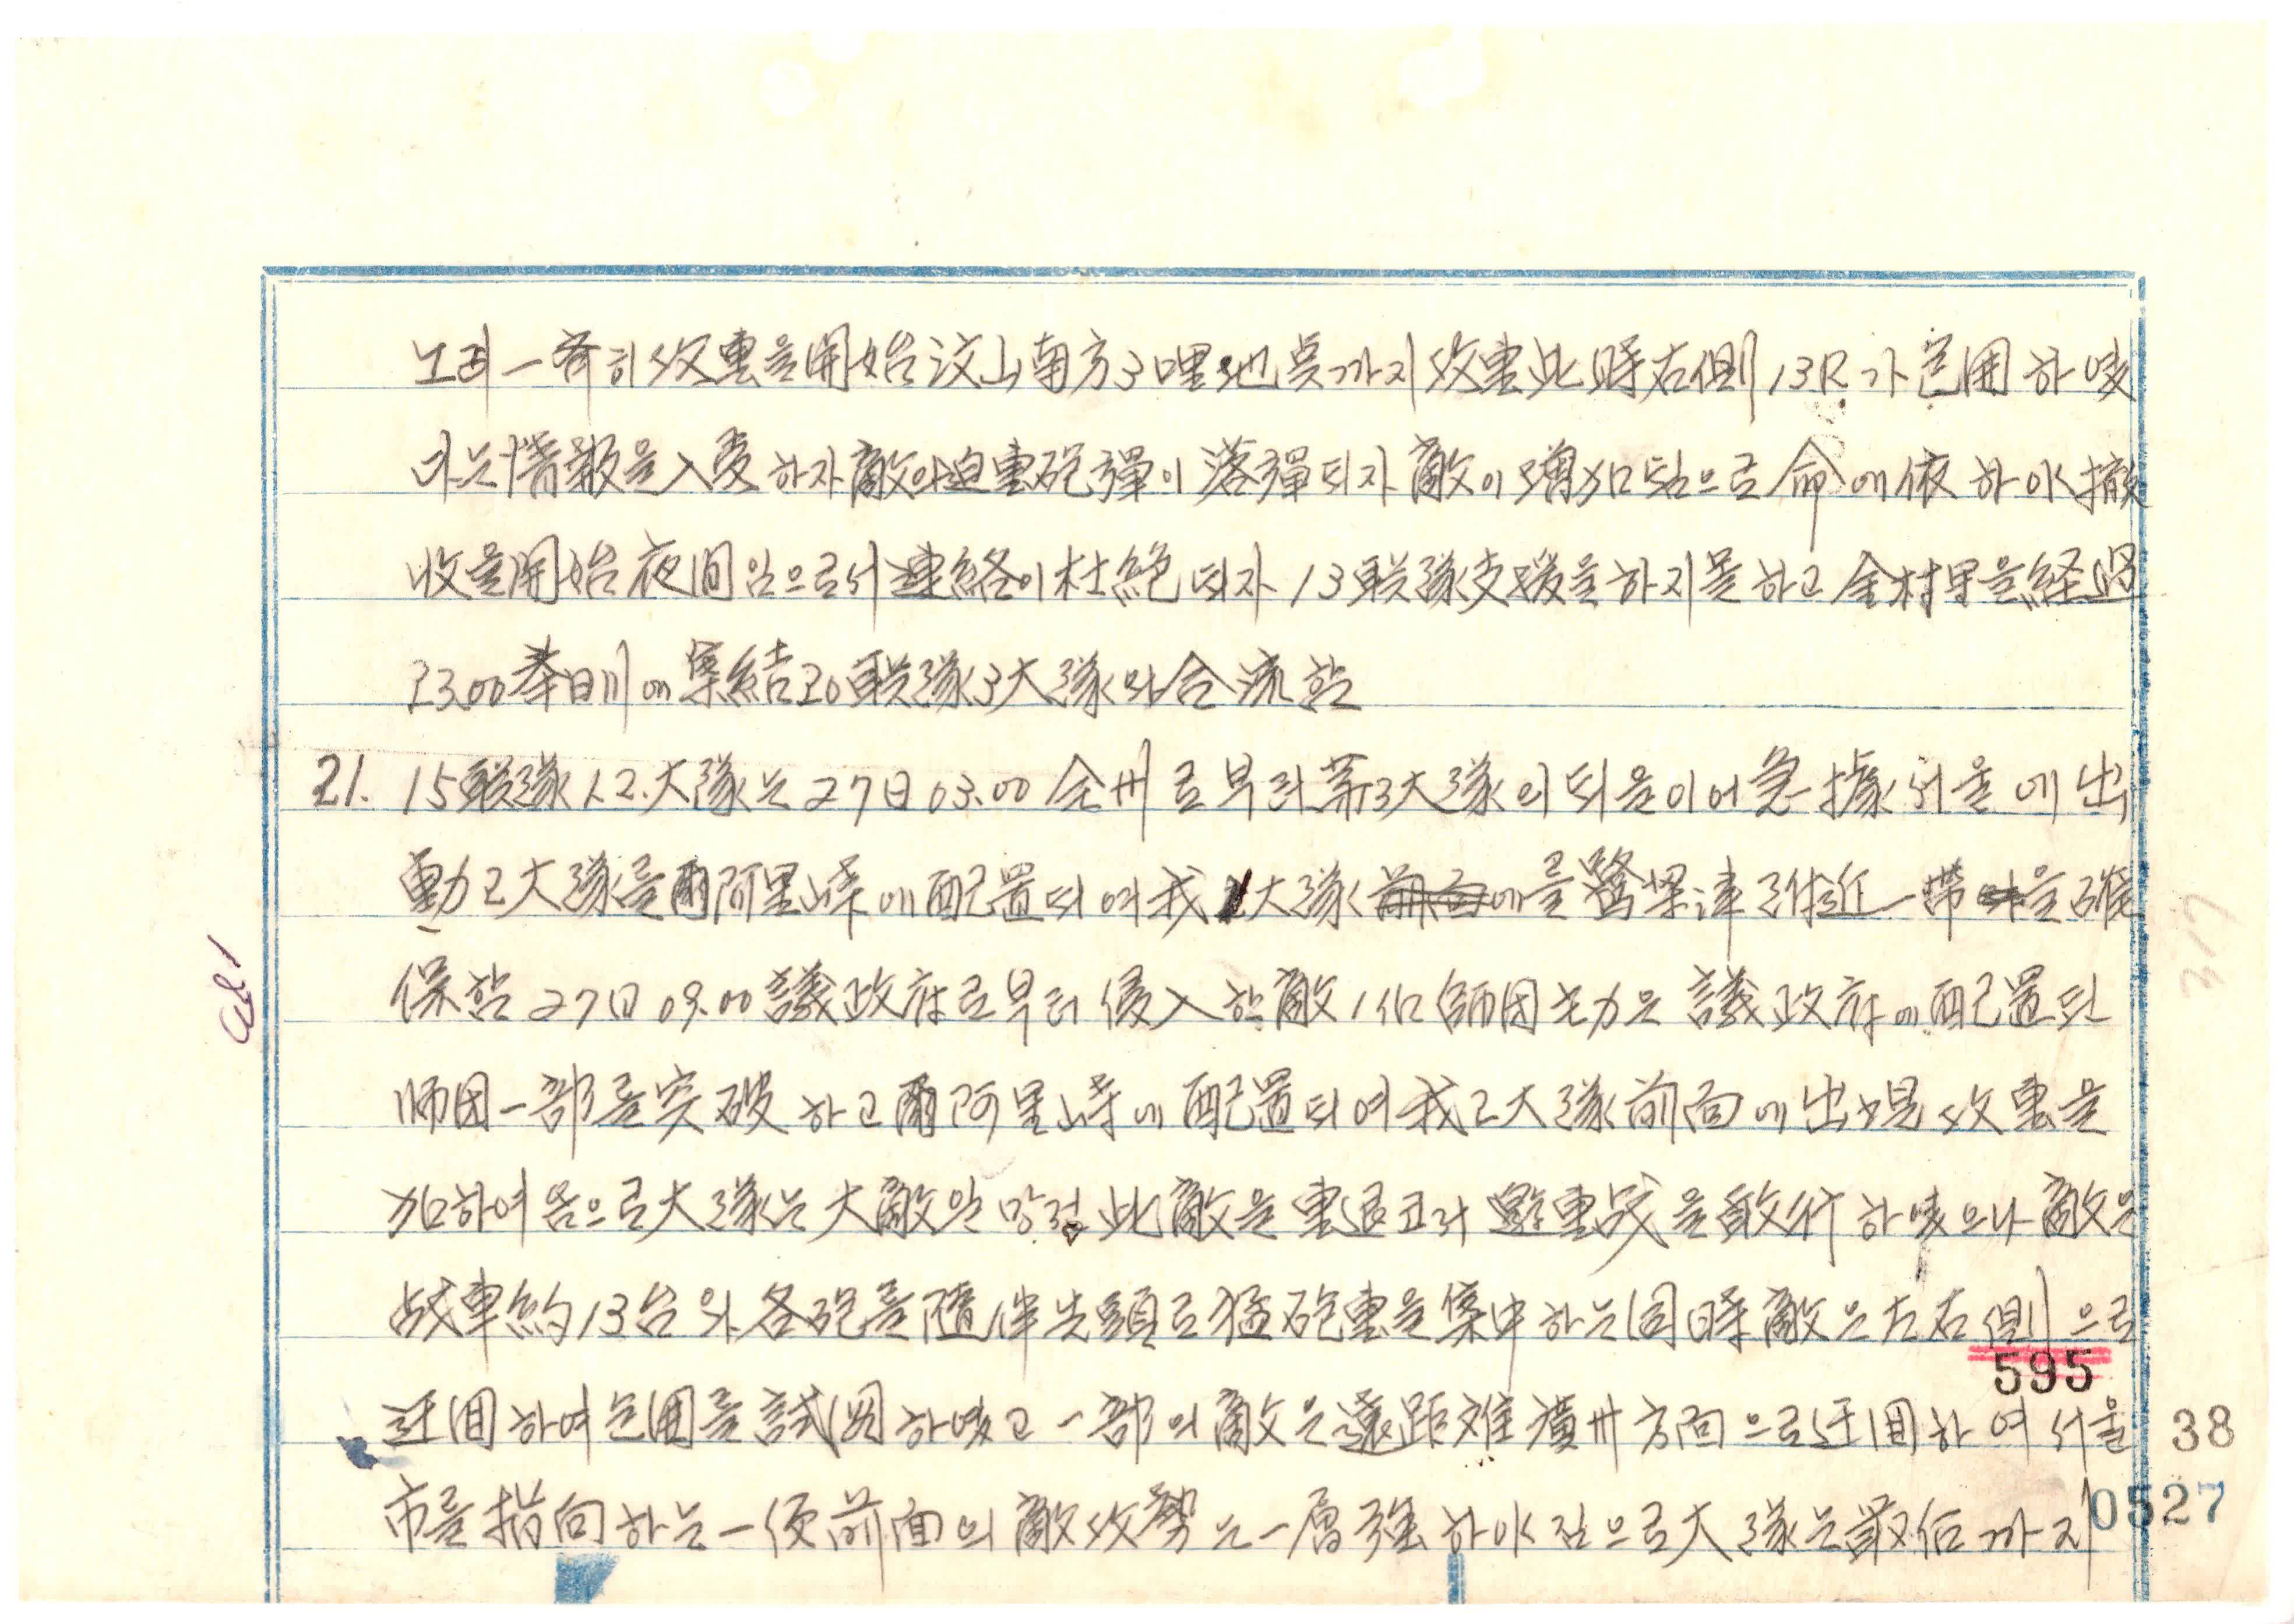 一齊히 攻擊을 開始 汶山南方 3哩 地点까지 攻擊 此時 右側 13R가 包圍 하였
다는 情報을 入受 하자 敵의 迫擊砲彈이 落彈되자 敵이 增加됨으로 命에 依 하야 撤
收을 開始 夜間임으로서 連絡이 杜絶 되자 13聯隊 支援을 하지 못 하고 金村里을 経過
23.00 奉日川에 集結 20聯隊 3大隊와 合流함
21. 15聯隊 1.2.大隊는 27日 03.00 全州로부터 第3大隊의 뒤을이어 急據 서울에 出
動 2大隊를 彌阿里峠에 配置되여 我 1大隊 를 鷺梁津 附近 一帶을 確
保함 27日 09.00 議政府로부터 侵入한 敵 1個師団 主力은 議政府에 配置된
師団一部를 突破하고 彌阿里峠에 配置되여 我2大隊 前面에 出現 攻擊을
加하여 옴으로 大隊는 大敵일망정 此敵을 擊退코저 邀擊战을 敢行 하였으나 敵은
战車 約 13台와 各砲를 隨伴 先頭로 猛砲擊을 集中하는 同時 敵은 左右側으로
迂回하여 包圍를 試圖하였고 一部의 敵은 遠距難 廣州方面으로 迂回하여 서울
市를 指向하는 一便 前面의 敵攻勢는 一層 强하야 짐으로 大隊는 最后까지
595
38
0527
317